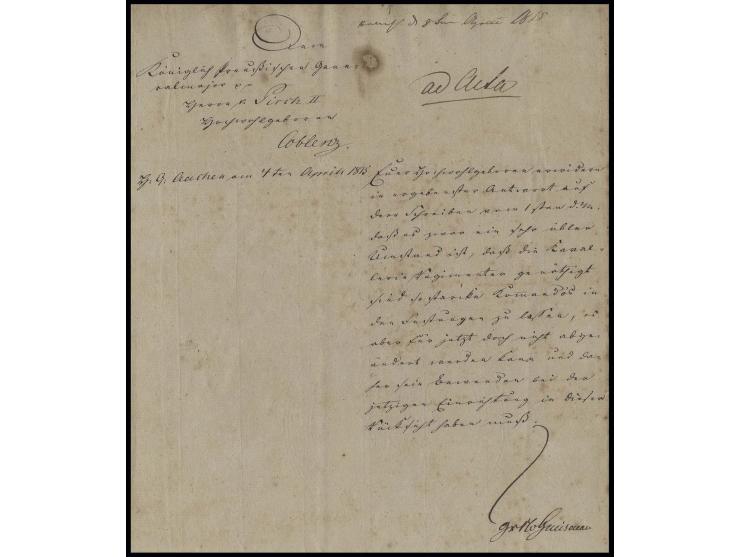 d 8ten April 1815
Dem
Königlich Preußischen Gene-
ralmajor pp
Herrn v. Pirch II
Hochwohlgeboren
Coblenz.
ad Acta
H. Q. Aachen am 4ten April 1815
Euer Hochwohlgeboren erwidern
in ergebenster Antwort auf
dero Schreiben vom 1sten d. M.
daß es zwar ein sehr übler
Umstand ist, daß die Kaval-
lerie Regimenter genöthigt
sind so starke Komandos in
den Festungen zu lassen, es
aber für jetzt doch nicht abge-
ändert werden kann und da-
her sein Bewenden bei der
jetzigen Einrichtung in dieser
Rücksicht haben muß.
Gr N v Gneisenau